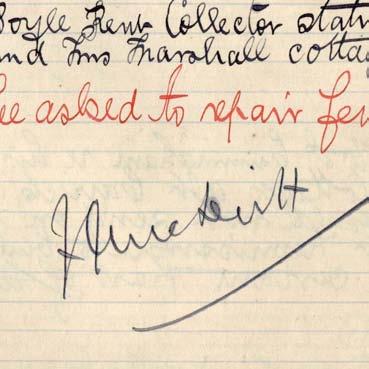 Boyle Rent Collector stat
and Mrs Marshall cottag
be asked to repair fe